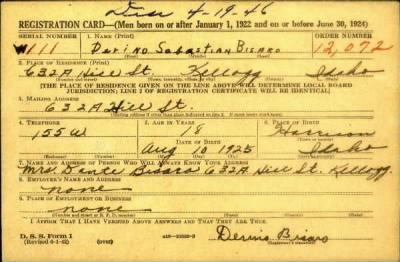 4-19-46
REGISTRATION CARD—(Men born on or after January 1, 1922 and on or before June 30, 1924)
SERIAL NUMBER 1. NAME (Print) ORDER NUMBER
111 Sebastian Bisaro 12,072
2. PLACE OF RESIDENCE (Print)
632A Hill St. Kellogg Idaho
[THE PLACE OF RESIDENCE GIVEN ON THE LINE ABOVE WILL DETERMINE LOCAL BOARD
JURISDICTION; LINE 2 OF REGISTRATION CERTIFICATE WILL BE IDENTICAL]
3. MAILING ADDRESS
632A Hill St.
4. TELEPHONE 5. AGE IN YEARS 6. PLACE OF BIRTH
155W 18 Harrison
DATE OF BIRTH
Aug 10 1925 Idaho
7. NAME AND ADDRESS OF PERSON WHO WILL ALWAYS KNOW YOUR ADDRESS
Mrs. Dante Bisaro 632A Hill St. Kellogg
8. EMPLOYER'S NAME AND ADDRESS
none
9. PLACE OF EMPLOYMENT OR BUSINESS
none
I AFFIRM THAT I HAVE VERIFIED ABOVE ANSWERS AND THAT THEY ARE TRUE.
D. S. S. Form 1
(over) Bisaro